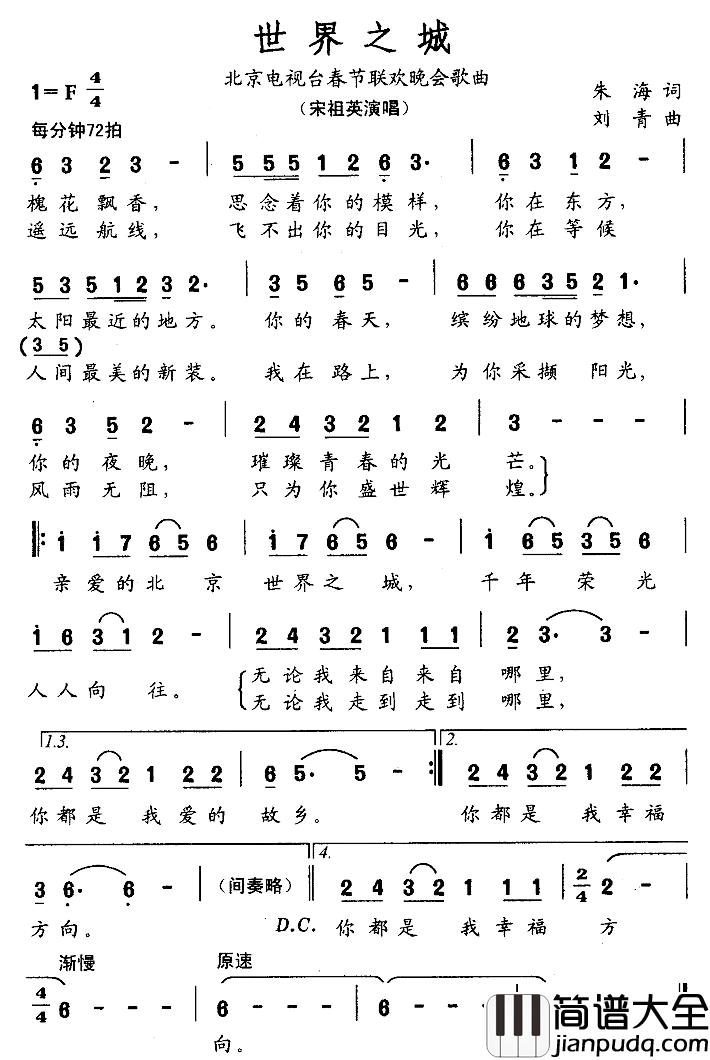 世界之城
北京电视台春节联欢晚会歌曲
1=F 4/4
朱海词
(宋祖英演唱)
刘青曲
每分钟72拍
6 3 2 3 - | 5 5 5 5 1 2 6 3· | 6 3 1 2 - |
槐花飘香， 思念着你的模样， 你在东方，
遥远航线， 飞不出你的目光， 你在等候
5 3 5 1 2 3 2· | 3 5 6 5 - | 6 6 6 3 5 2 1· |
太阳最近的地方。 你的春天， 缤纷地球的梦想，
(3 5)
人间最美的新装。 我在路上， 为你采撷 阳光，
6 3 5 2 - | 2 4 3 2 1 2 | 3 - - - |
你的夜晚， 璀璨青春的光 芒。
风雨无阻， 只为你盛世辉 煌。
1 1 7 6 5 6 | 1 1 7 6 5 6 - | 1 6 5 3 5 6 |
亲爱的北 京 世界之 城， 千年 荣光
1 6 3 1 2 - | 2 4 3 2 1 1 1 | 2 3· 3 - |
无论我来自来自 哪里，
人人向 往。
无论我走到走到 哪里，
1.3. 2.
2 4 3 2 1 2 2 | 6 5· 5 - :| 2 4 3 2 1 2 2 |
你都是 我爱的 故乡。 你都是 我幸福
4.
3 6· 6 - | (间奏略) 2 4 3 2 1 1 1 | 2/4 2 - |
方向。 D.C. 你都是 我幸福 方
渐慢 原速
4/4 6 - - - | 6 - - - | 6 - - - |
向。
简谱大全
jianpudq.com